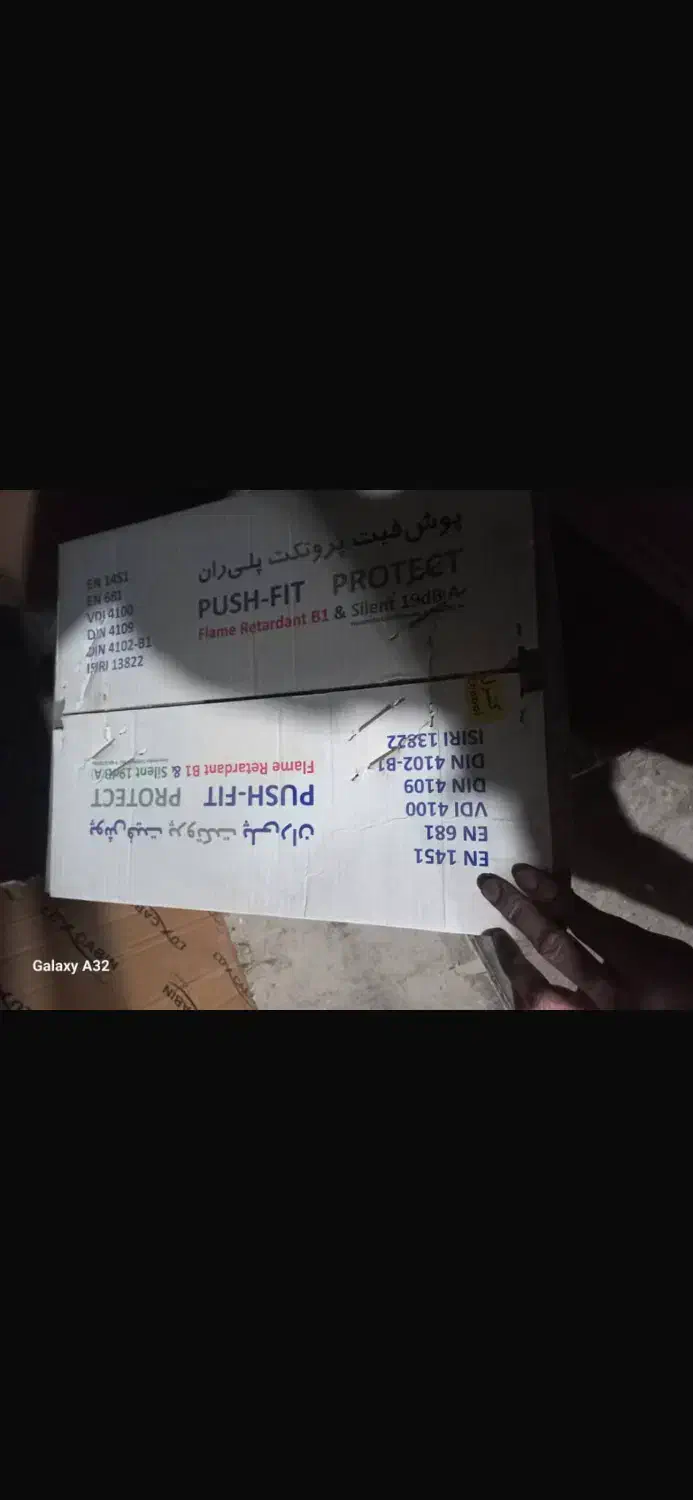 پوش‌فیت پروتکت پلی‌ران
PUSH-FIT PROTECT
Flame Retardant B1 & Silent 19dB(A)
EN 1451
EN 681
VDI 4100
DIN 4109
DIN 4102-B1
ISIRI 13822
کنترل
پوش‌فیت پروتکت پلی‌ران
PUSH-FIT PROTECT
Flame Retardant B1 & Silent 19dB(A)
EN 1451
EN 681
VDI 4100
DIN 4109
DIN 4102-B1
ISIRI 13822
CABIN
Galaxy A32